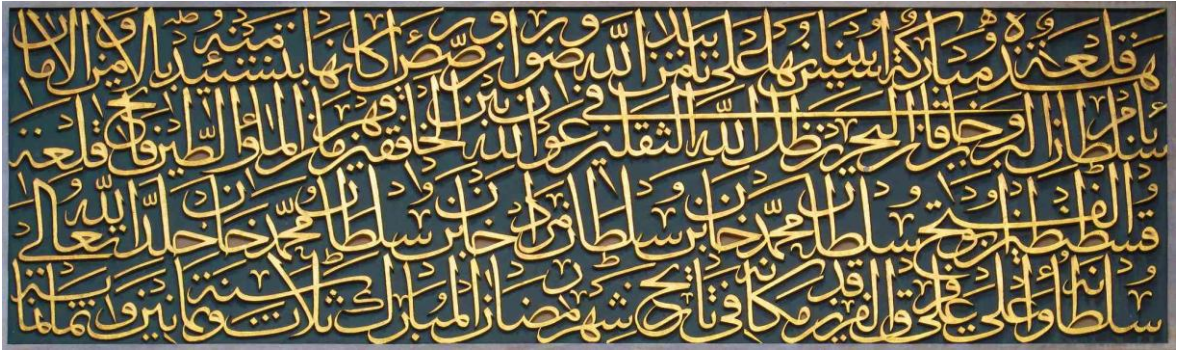 هذه قلعة مباركة أسس بنيانها على تأييد من الله ورضوان ورصص أركانها بتشييد منه بالأمن والأمان
بأمر سلطان البرين وخاقان البحرين ظل الله في الثقلين عون الله بين الخافقين قهرمان الماء والطين فاتح قلعة
قسطنطنية أبو الفتح سلطان محمد خان بن سلطان مراد خان بن سلطان محمد خان خلد الله تعالى
سلطانه وأعلى على فرق الفرقدين مكانه في تاريخ شهر رمضان المبارك سنة ثلاث وثمانين وثمانمائة